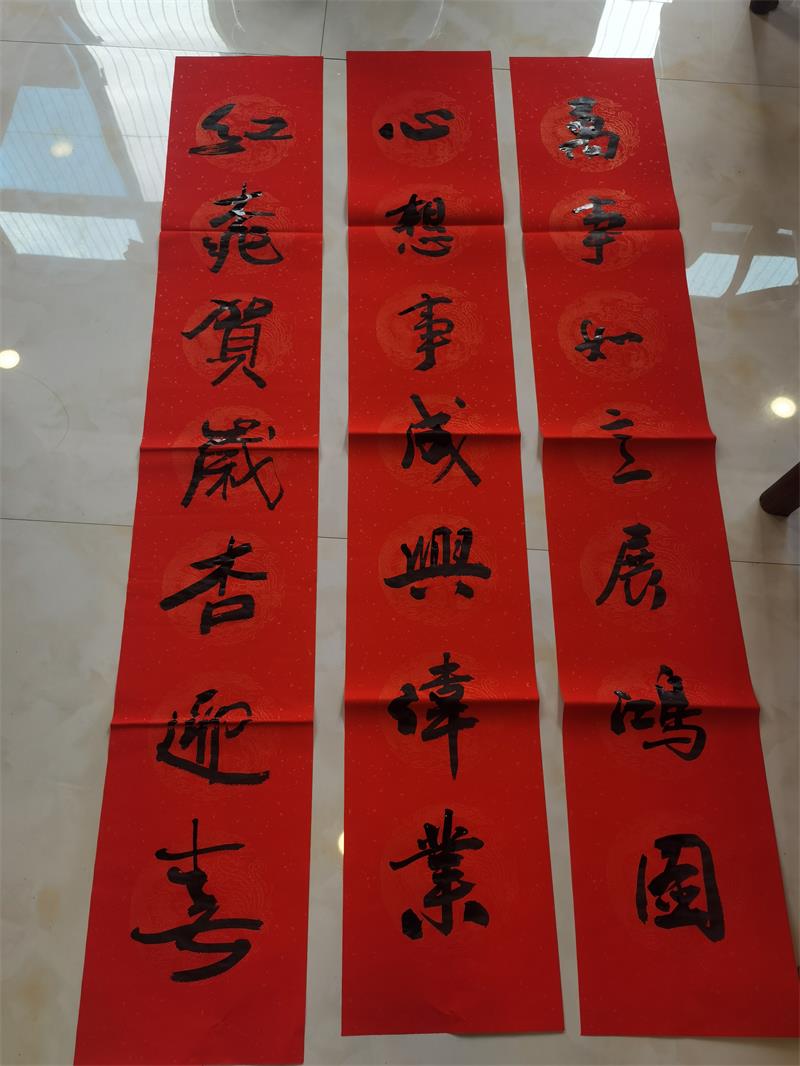 萬事如意展鴻圖
心想事成興偉業
紅桃賀歲杏迎春